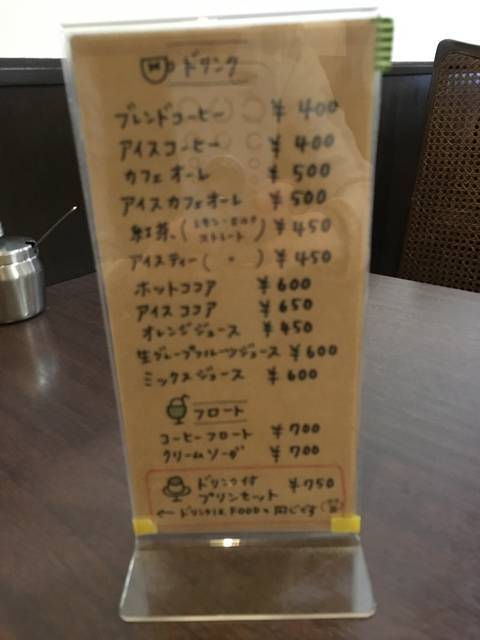 ドリンク
ブレンドコーヒー ¥400
アイスコーヒー ¥400
カフェオーレ ¥500
アイスカフェオーレ ¥500
紅茶(レモン・ミルク ストレート) ¥450
アイスティー( 〃 ) ¥450
ホットココア ¥600
アイスココア ¥650
オレンジジュース ¥450
生グレープフルーツジュース ¥600
ミックスジュース ¥600
フロート
コーヒーフロート ¥700
クリームソーダ ¥700
ドリンク付 ¥750
プリンセット
← ドリンクは FOODと同じです